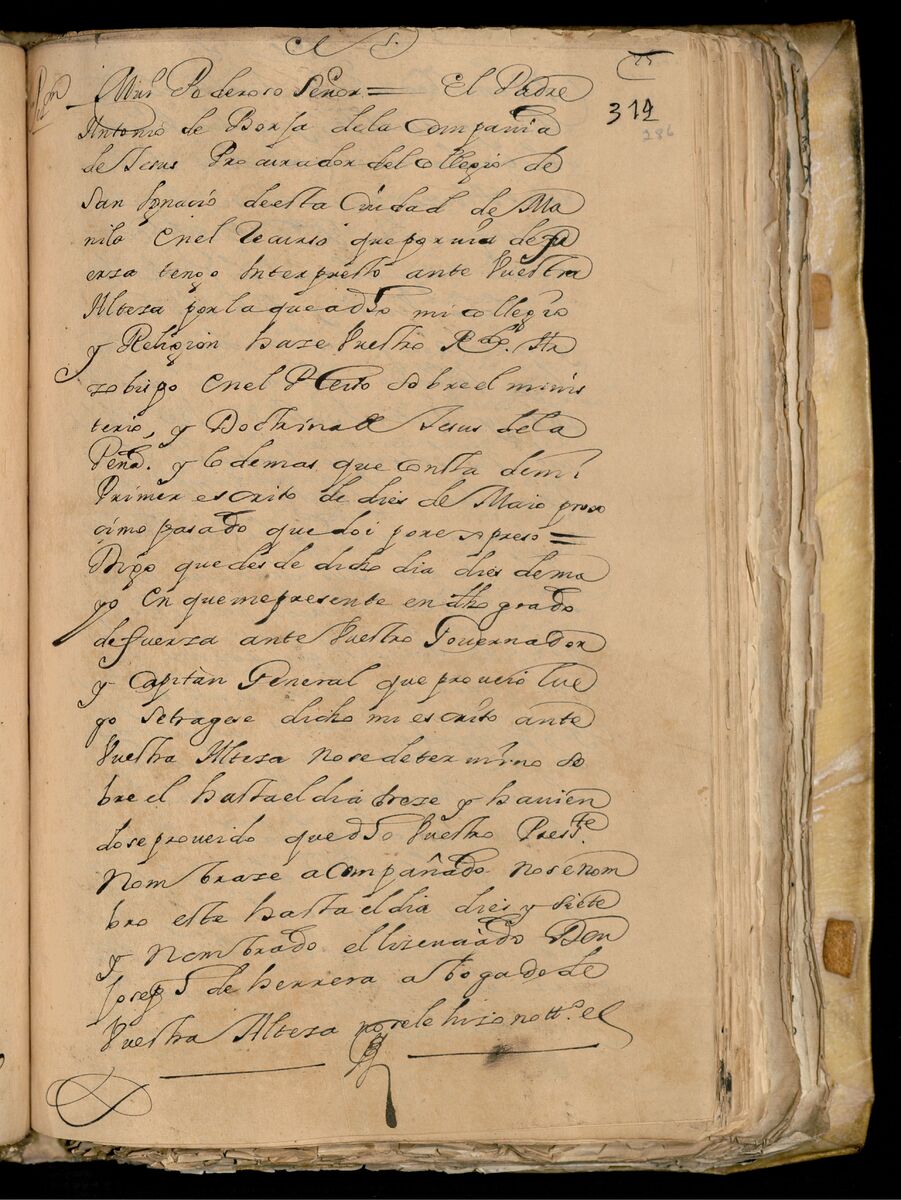 75
314
286
P.on
Mui Poderoso Señor = El Padre
Antonio de Borja dela Compañia
de Jesus Procurador del Collegio de
San Ygnacio deesta Ciudad de Ma
nila en el recurso que por via de fu
erza tengo Interpresto ante Vuestra
Alteza por la que a dho mi collegio
y Religion haze Vuestro R.do Ar
zobispo en el Pleito sobre el minis
terio, y Doctrina de Jesus dela
Peña. y lo demas que consta de mi
Primer escrito de dies de Maio prox
cimo pasado que doi por expreso =
Digo que desde dicho dia dies de ma
yo en que me presente en dho grado
de fuerza ante Vuestro Governador
y Capitàn General que proueio lue
go setragese dicho mi escrito ante
Vuestra Alteza nose determino so
bre el hasta el dia treze y hauien
dose proueido que dho Vuestro Press.te
nombrase acompañado nose nom
bro este hasta el dia diez y siete
y nombrado el lizenciado Don
Joseph de herrera abogado de
Vuestra Alteza no sele hizo nott.o el